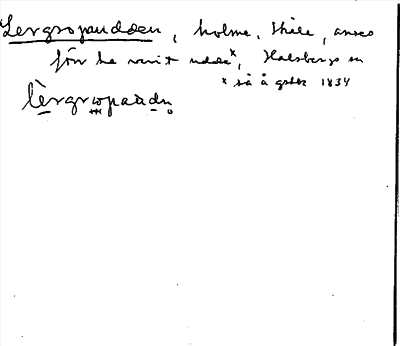 Lergropaudden, holme, Skåle, anses
förr ha varit udde x, Halsbergs sn
x så å gstk 1834
Lèrgropaadn